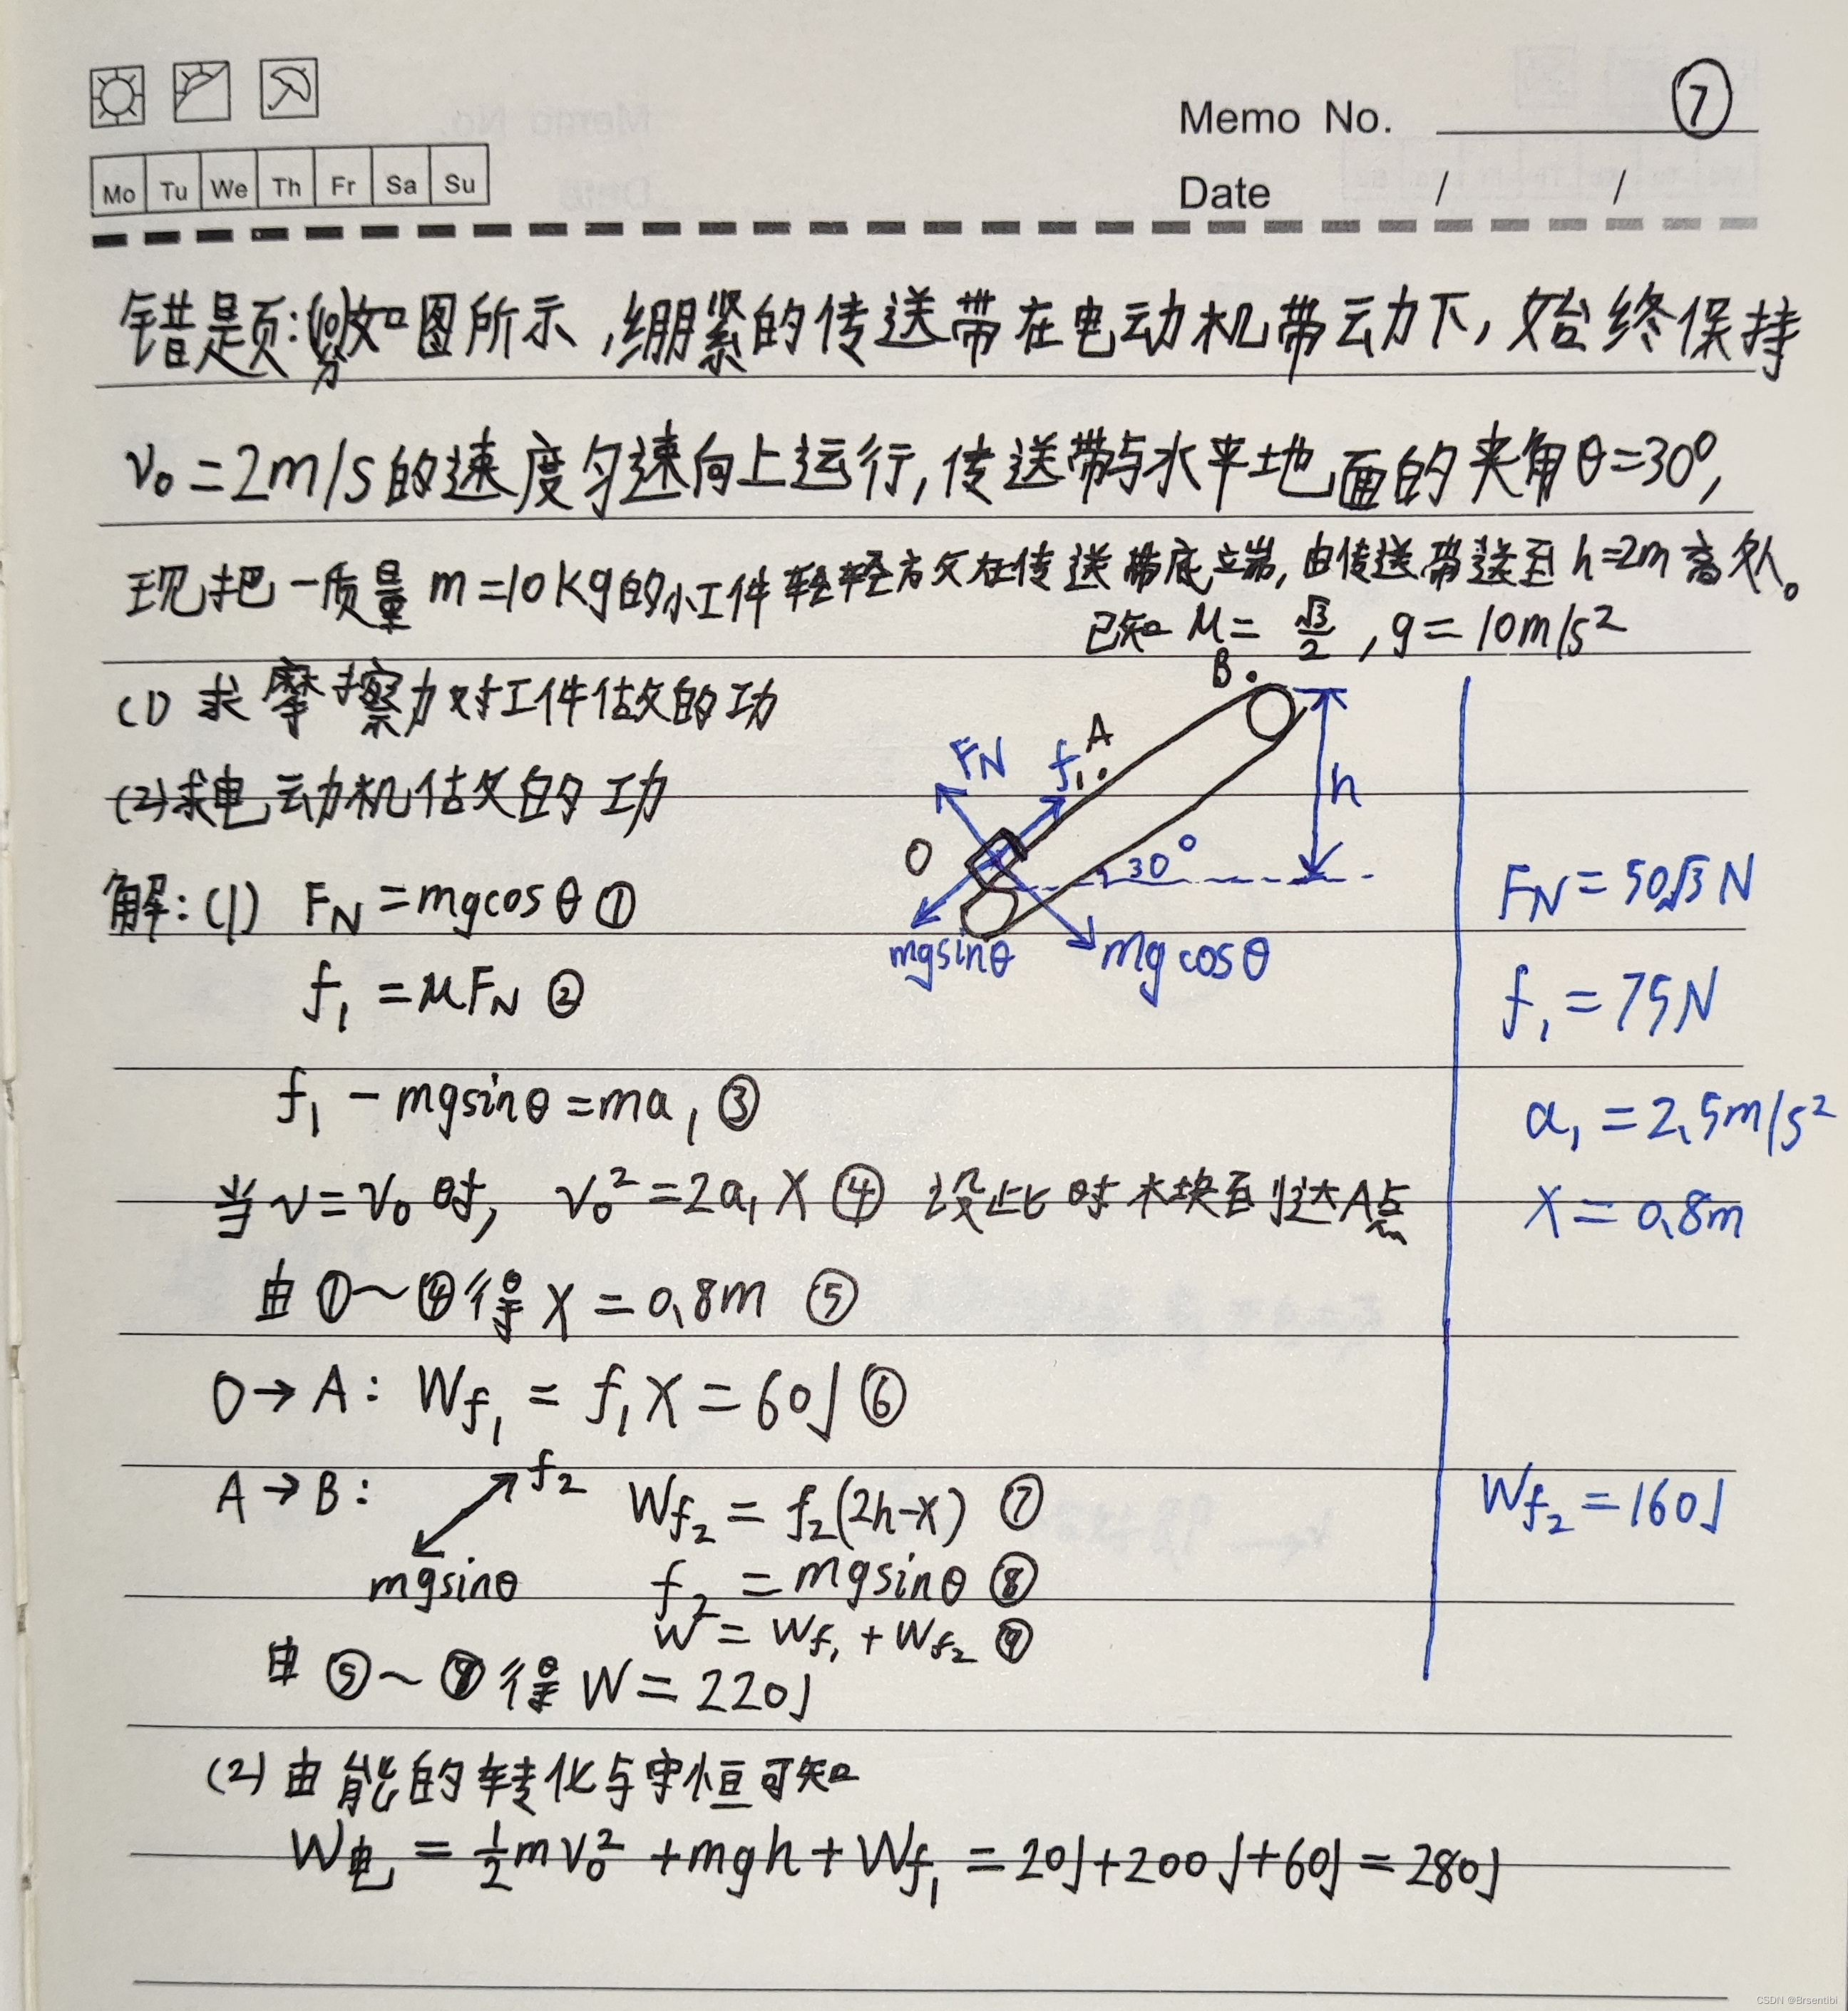 Memo No. ⑦
Mo Tu We Th Fr Sa Su
Date / /
错题:(10分)如图所示,绷紧的传送带在电动机带动下,始终保持
v₀=2m/s的速度匀速向上运行,传送带与水平地面的夹角θ=30°,
现把一质量m=10kg的小工件轻轻放在传送带底端,由传送带送至h=2m高处。
已知μ=√3/2,g=10m/s²
(1)求摩擦力对工件做的功
(2)求电动机做的功
B
A
FN
f₁
h
O
30°
mgsinθ
mgcosθ
解:(1) FN=mgcosθ①
f₁=μFN②
f₁-mgsinθ=ma₁③
当v=v₀时, v₀²=2a₁x④ 设此时木块到达A点
由①~④得x=0.8m⑤
O→A: Wf₁=f₁x=60J⑥
A→B:
f₂
mgsinθ
Wf₂=f₂(2h-x)⑦
f₂=mgsinθ⑧
W=Wf₁+Wf₂⑨
由⑤~⑨得W=220J
FN=50√3N
f₁=75N
a₁=2.5m/s²
x=0.8m
Wf₂=160J
(2)由能的转化与守恒可知
W电=½mv₀²+mgh+Wf₁=20J+200J+60J=280J
CSDN @Brsentibi